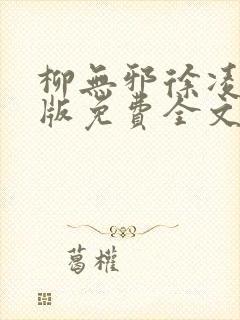 柳無邪徐凌
版免費全文
葛權